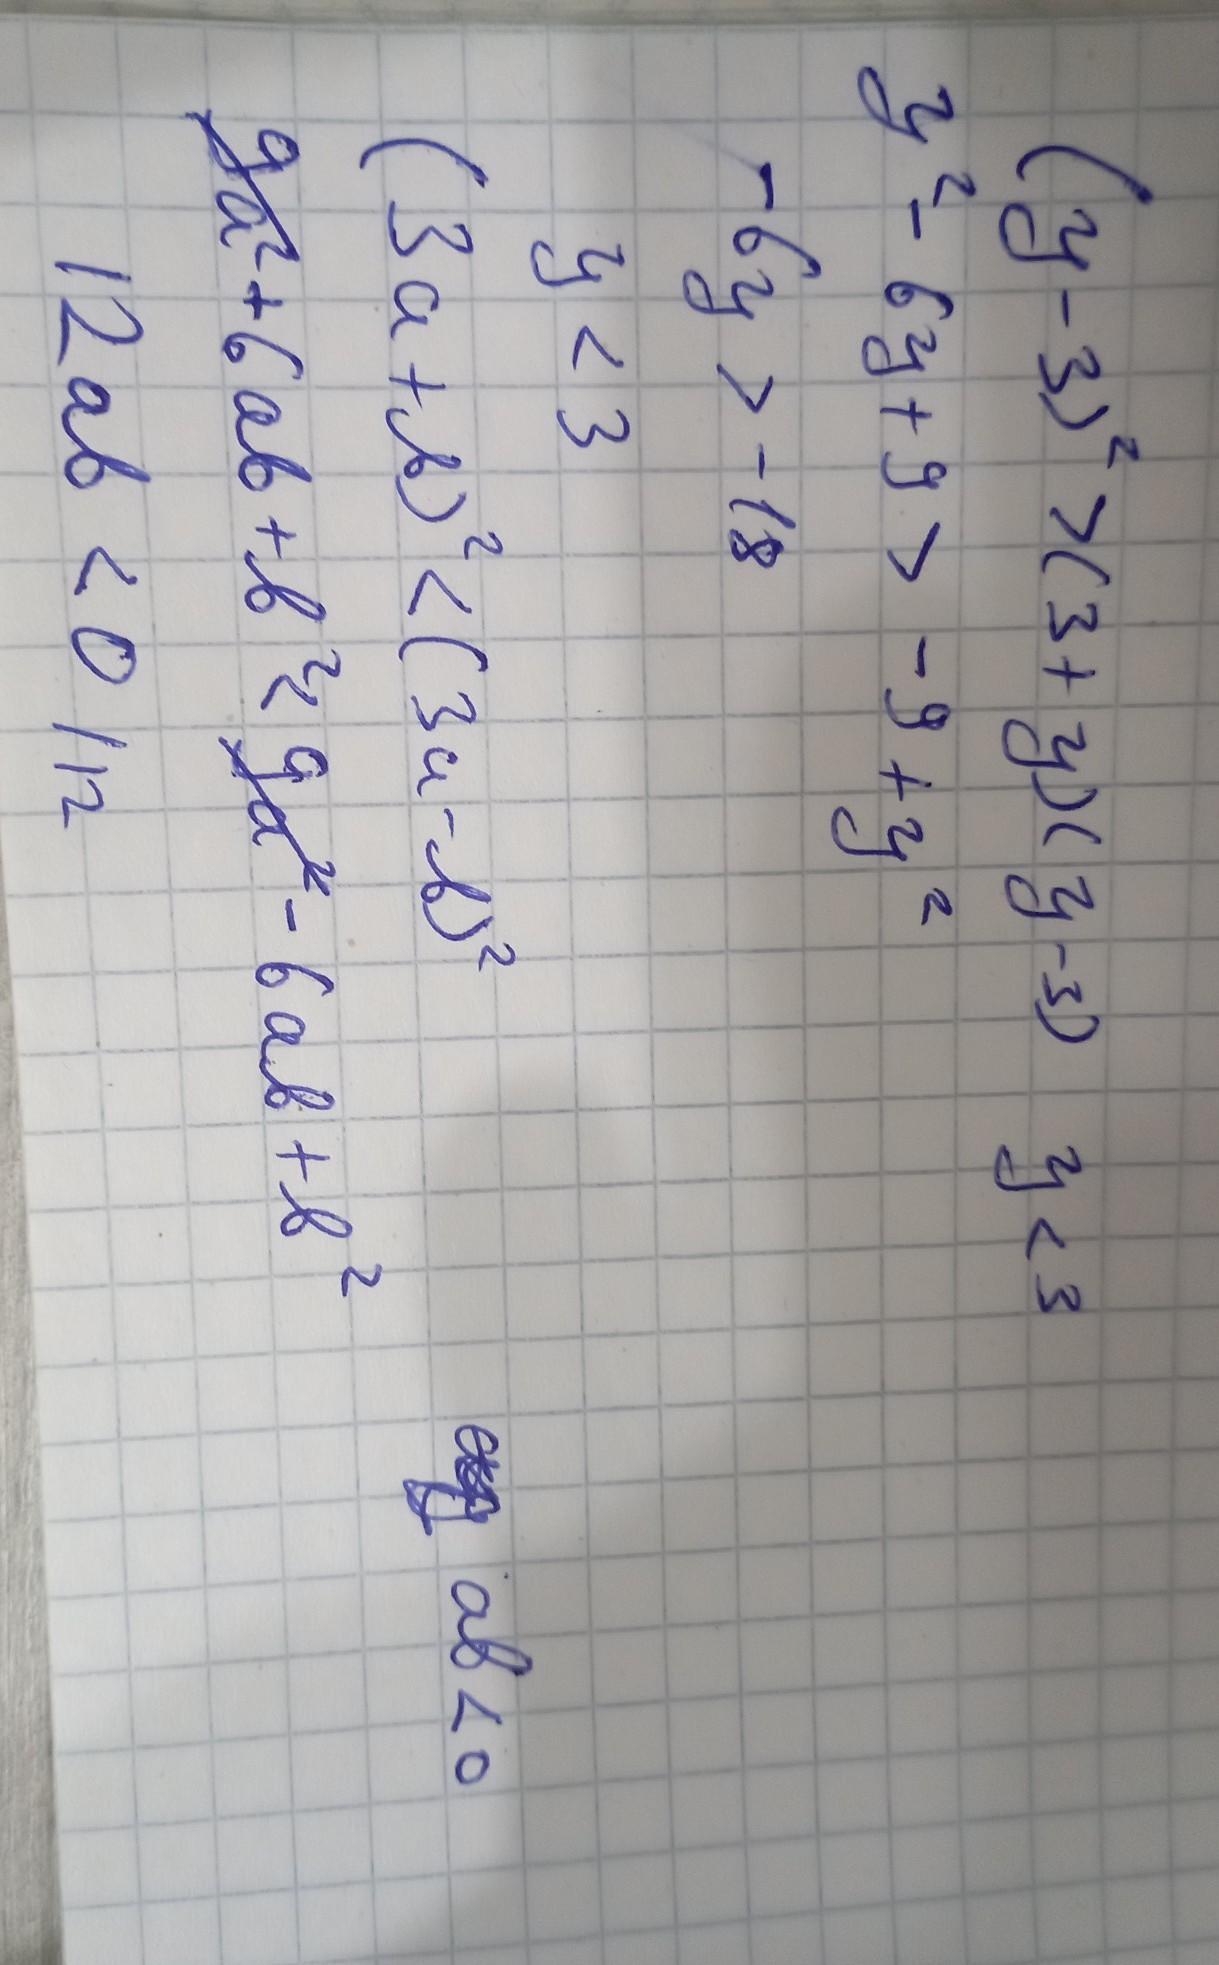 (y-3)² > (3+y)(y-3) y < 3
y² - 6y + 9 > -9 + y²
-6y > -18
y < 3
(3a+b)² < (3a-b)² ab < 0
9a² + 6ab + b² < 9a² - 6ab + b²
12ab < 0 /12